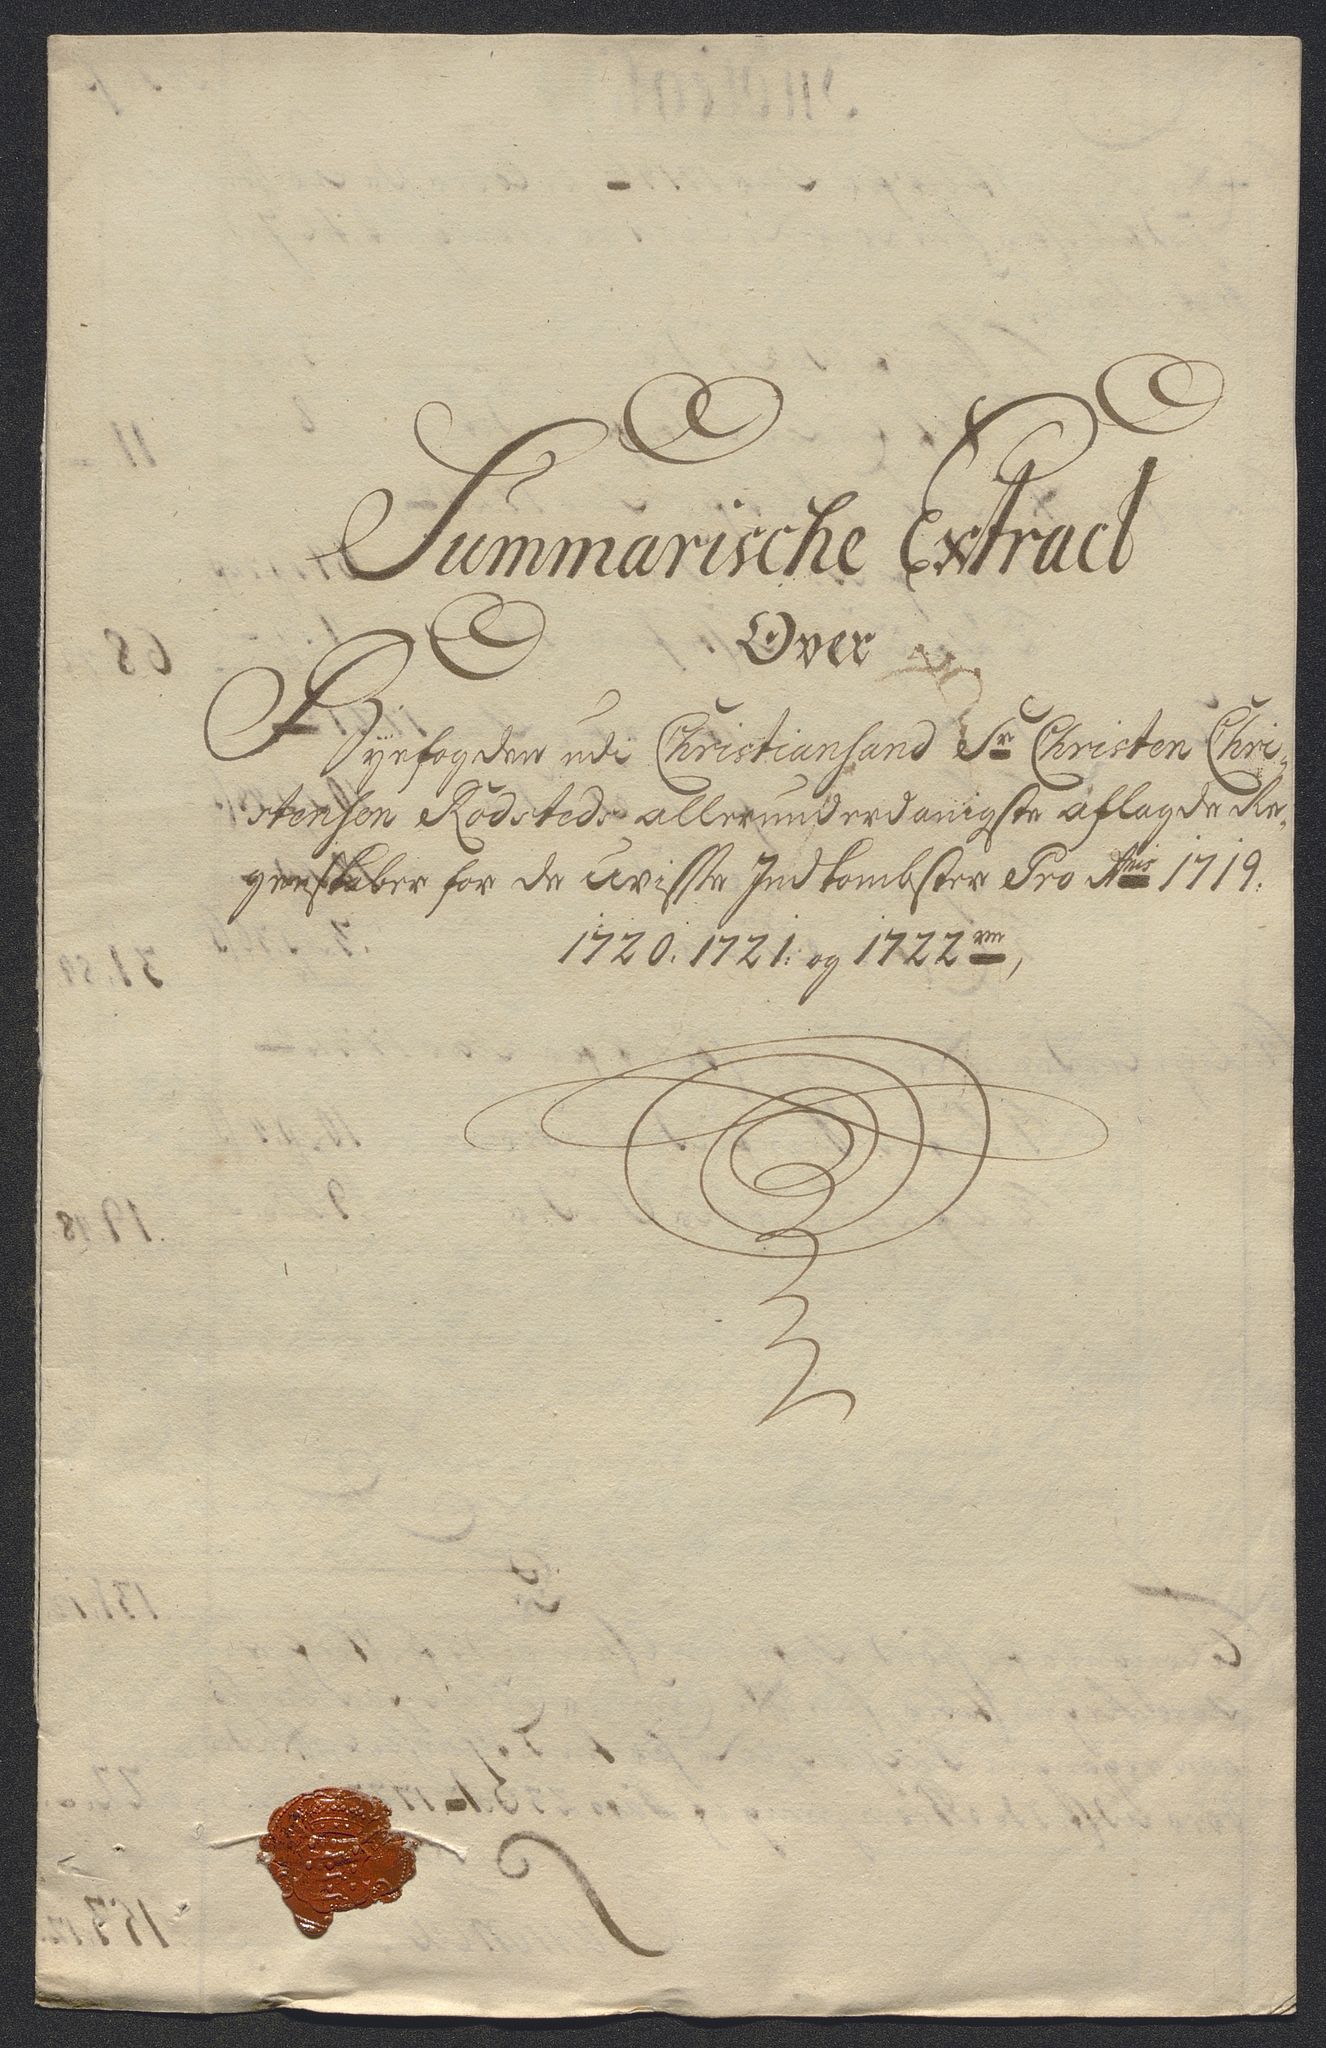 Summarische Extract
Over
Byefogden udi Christiansand Sr Christen Chri-
stensen Rodsteds allerunderdanigste aflagde Re-
genskaber for de uvisse Indkombster Pro Anis 1719.
1720. 1721. og 1722